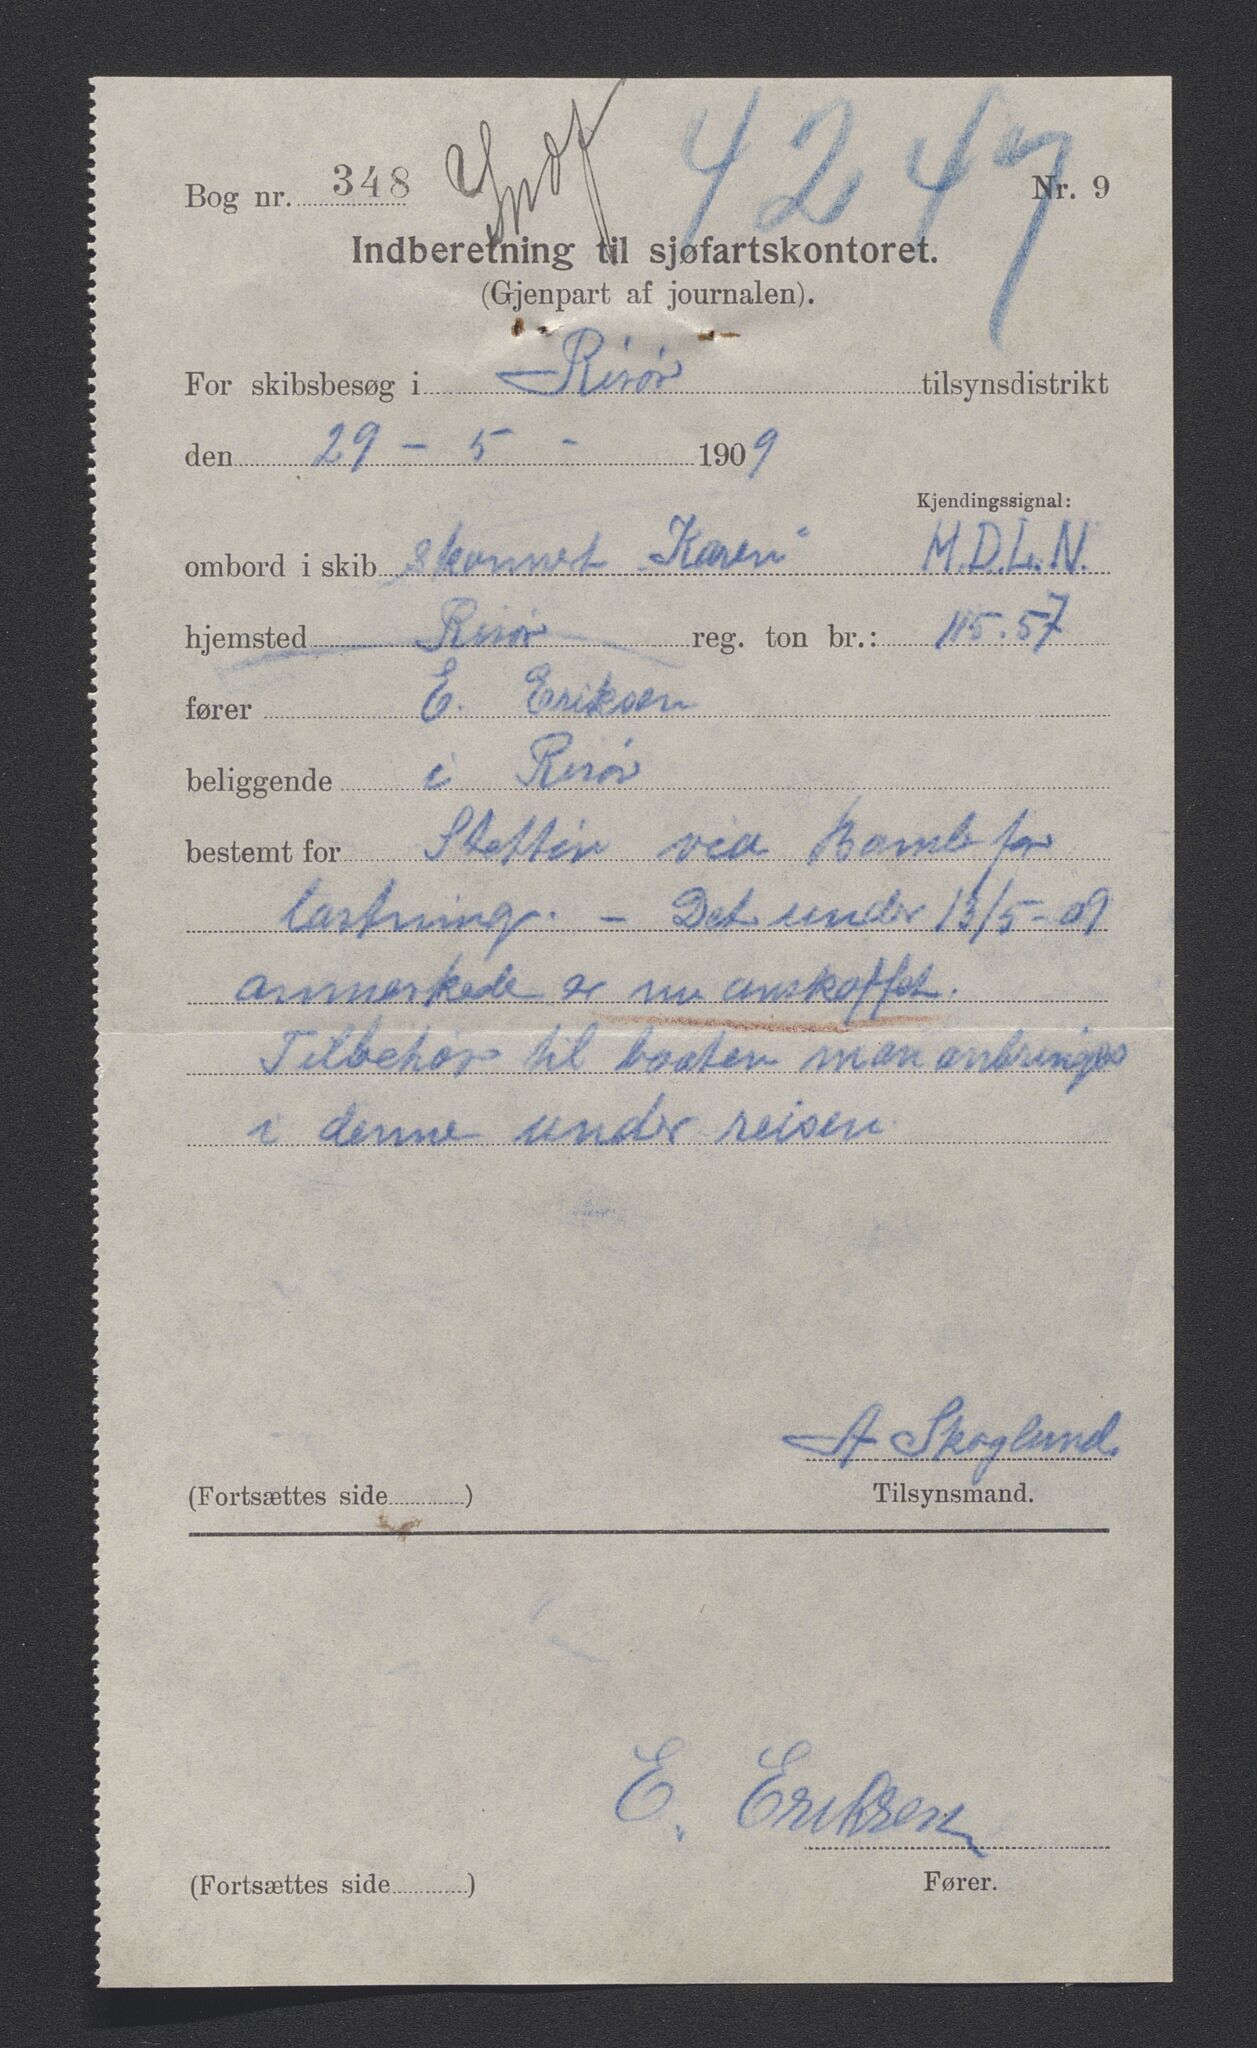 4247
Bog nr. 348 Nr. 9
Indberetning til sjøfartskontoret.
(Gjenpart af journalen).
For skibsbesøg i Risør tilsynsdistrikt
den 29 - 5 - 1909
Kjendingssignal:
ombord i skib skonnert "Karen" M.D.L.N.
hjemsted Risør reg. ton br.: 115.57
fører E. Eriksen
beliggende i Risør
bestemt for Stettin via Bamle for
lastning. - Det under 13/5-09
anmerkede er nu anskaffet.
Tilbehør til baaten maa anbringes
i denne under reisen
A Skoglund
(Fortsættes side ) Tilsynsmand.
E. Eriksen
(Fortsættes side ) Fører.